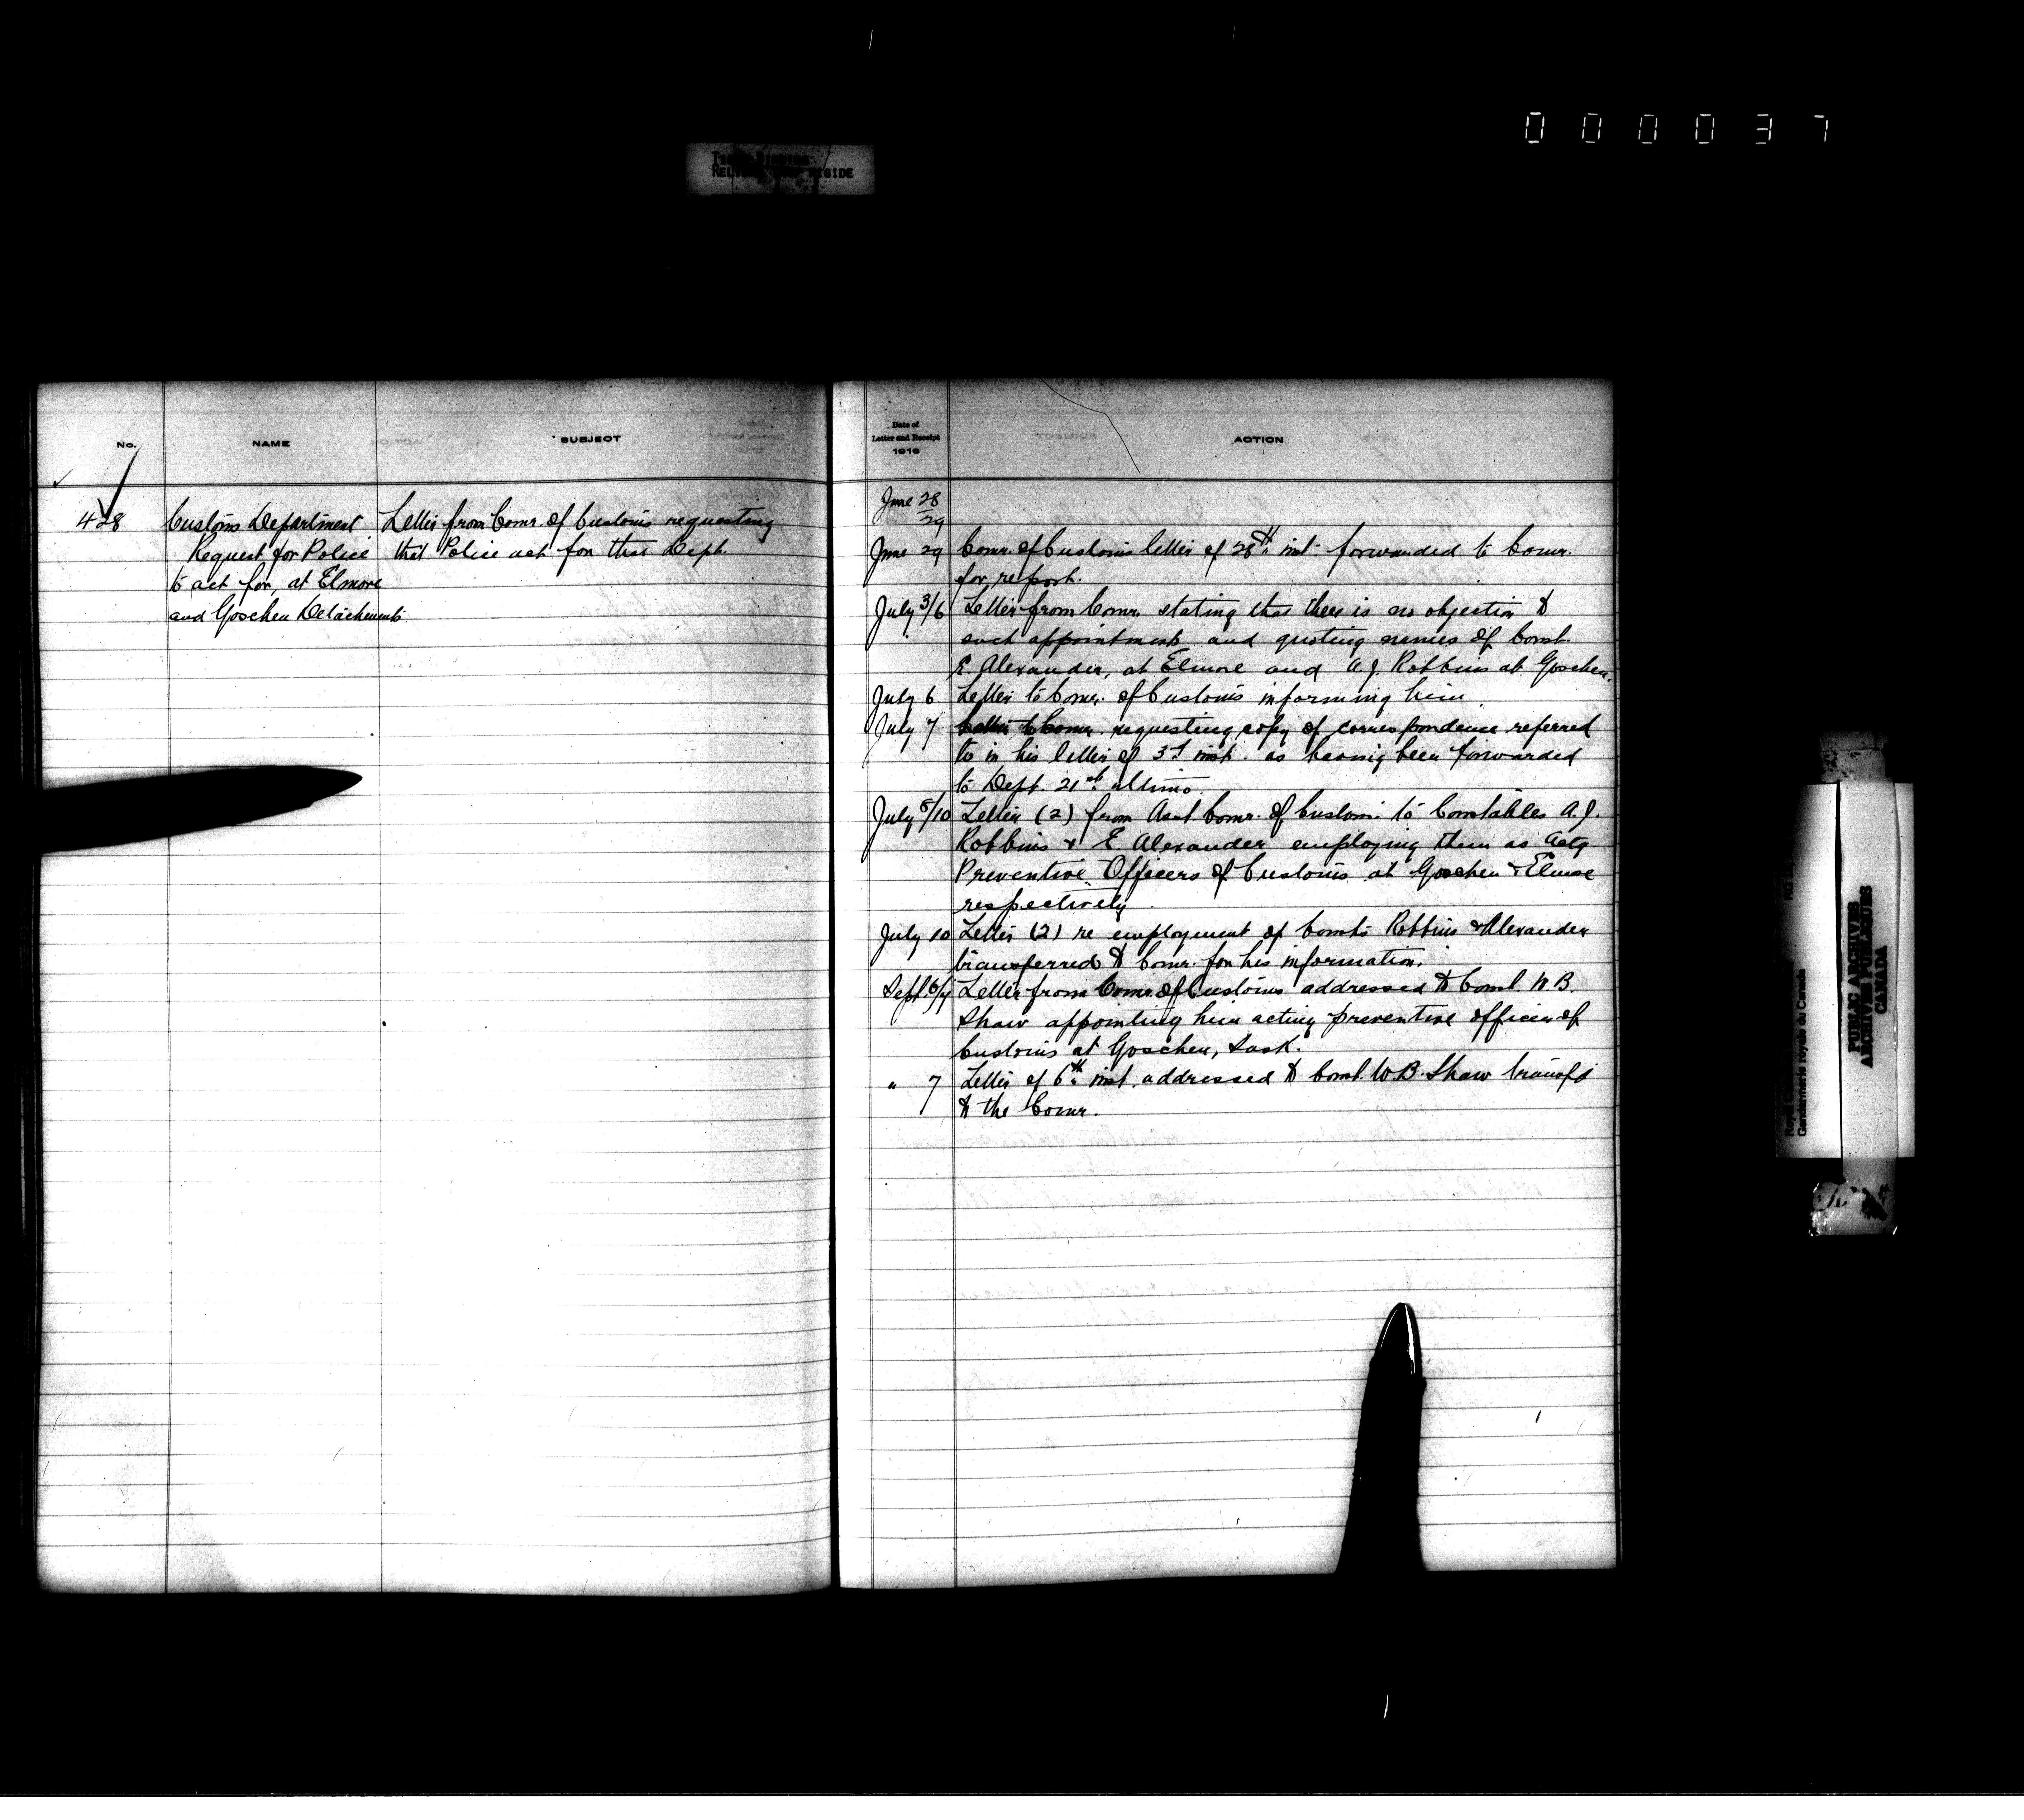 000037
RIGIDE
No.
NAME
SUBJECT
428
Customs Department
Request for Police
to act for, at Elmore
and Goschen Detachments
Letter from Comr. of Customs requesting
that Police act for that Dept.
Date of
Letter and Receipt
1916
ACTION
June 28
29
June 29 Comr. of Customs letter of 28th inst. forwarded to Comr.
for report.
July 3/6 Letter from Comr. stating that there is no objection to
such appointments and quoting names of Const.
E. Alexander, at Elmore and A.J. Robbins at Goschen.
July 6 Letter to Comr. of Customs informing him
July 7 Letter to Comr. requesting copy of correspondence referred
to in his letter of 3d inst. as having been forwarded
to Dept. 21st ultimo.
July 8/10 Letter (2) from Asst Comr. of Customs to Constables A.J.
Robbins & E. Alexander employing them as Actg
Preventive Officers of Customs at Goschen & Elmore
respectively.
July 10 Letter (2) re employment of Consts Robbins & Alexander
transferred to Comr. for his information.
Sept. 6/7 Letter from Comr. of Customs addressed to Const. W.B.
Shaw appointing him acting preventive officer of
Customs at Goschen, Sask.
" 7 Letter of 6th inst. addressed to Const. W.B. Shaw transf'd
to the Comr.
Gendarmerie royale du Canada
PUBLIC ARCHIVES
ARCHIVES PUBLIQUES
CANADA